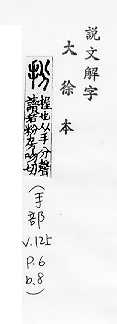 說文解字
大徐本
扮
握也从手分聲
讀若粉房吻切
(手部
v.125
p.6
b.8)